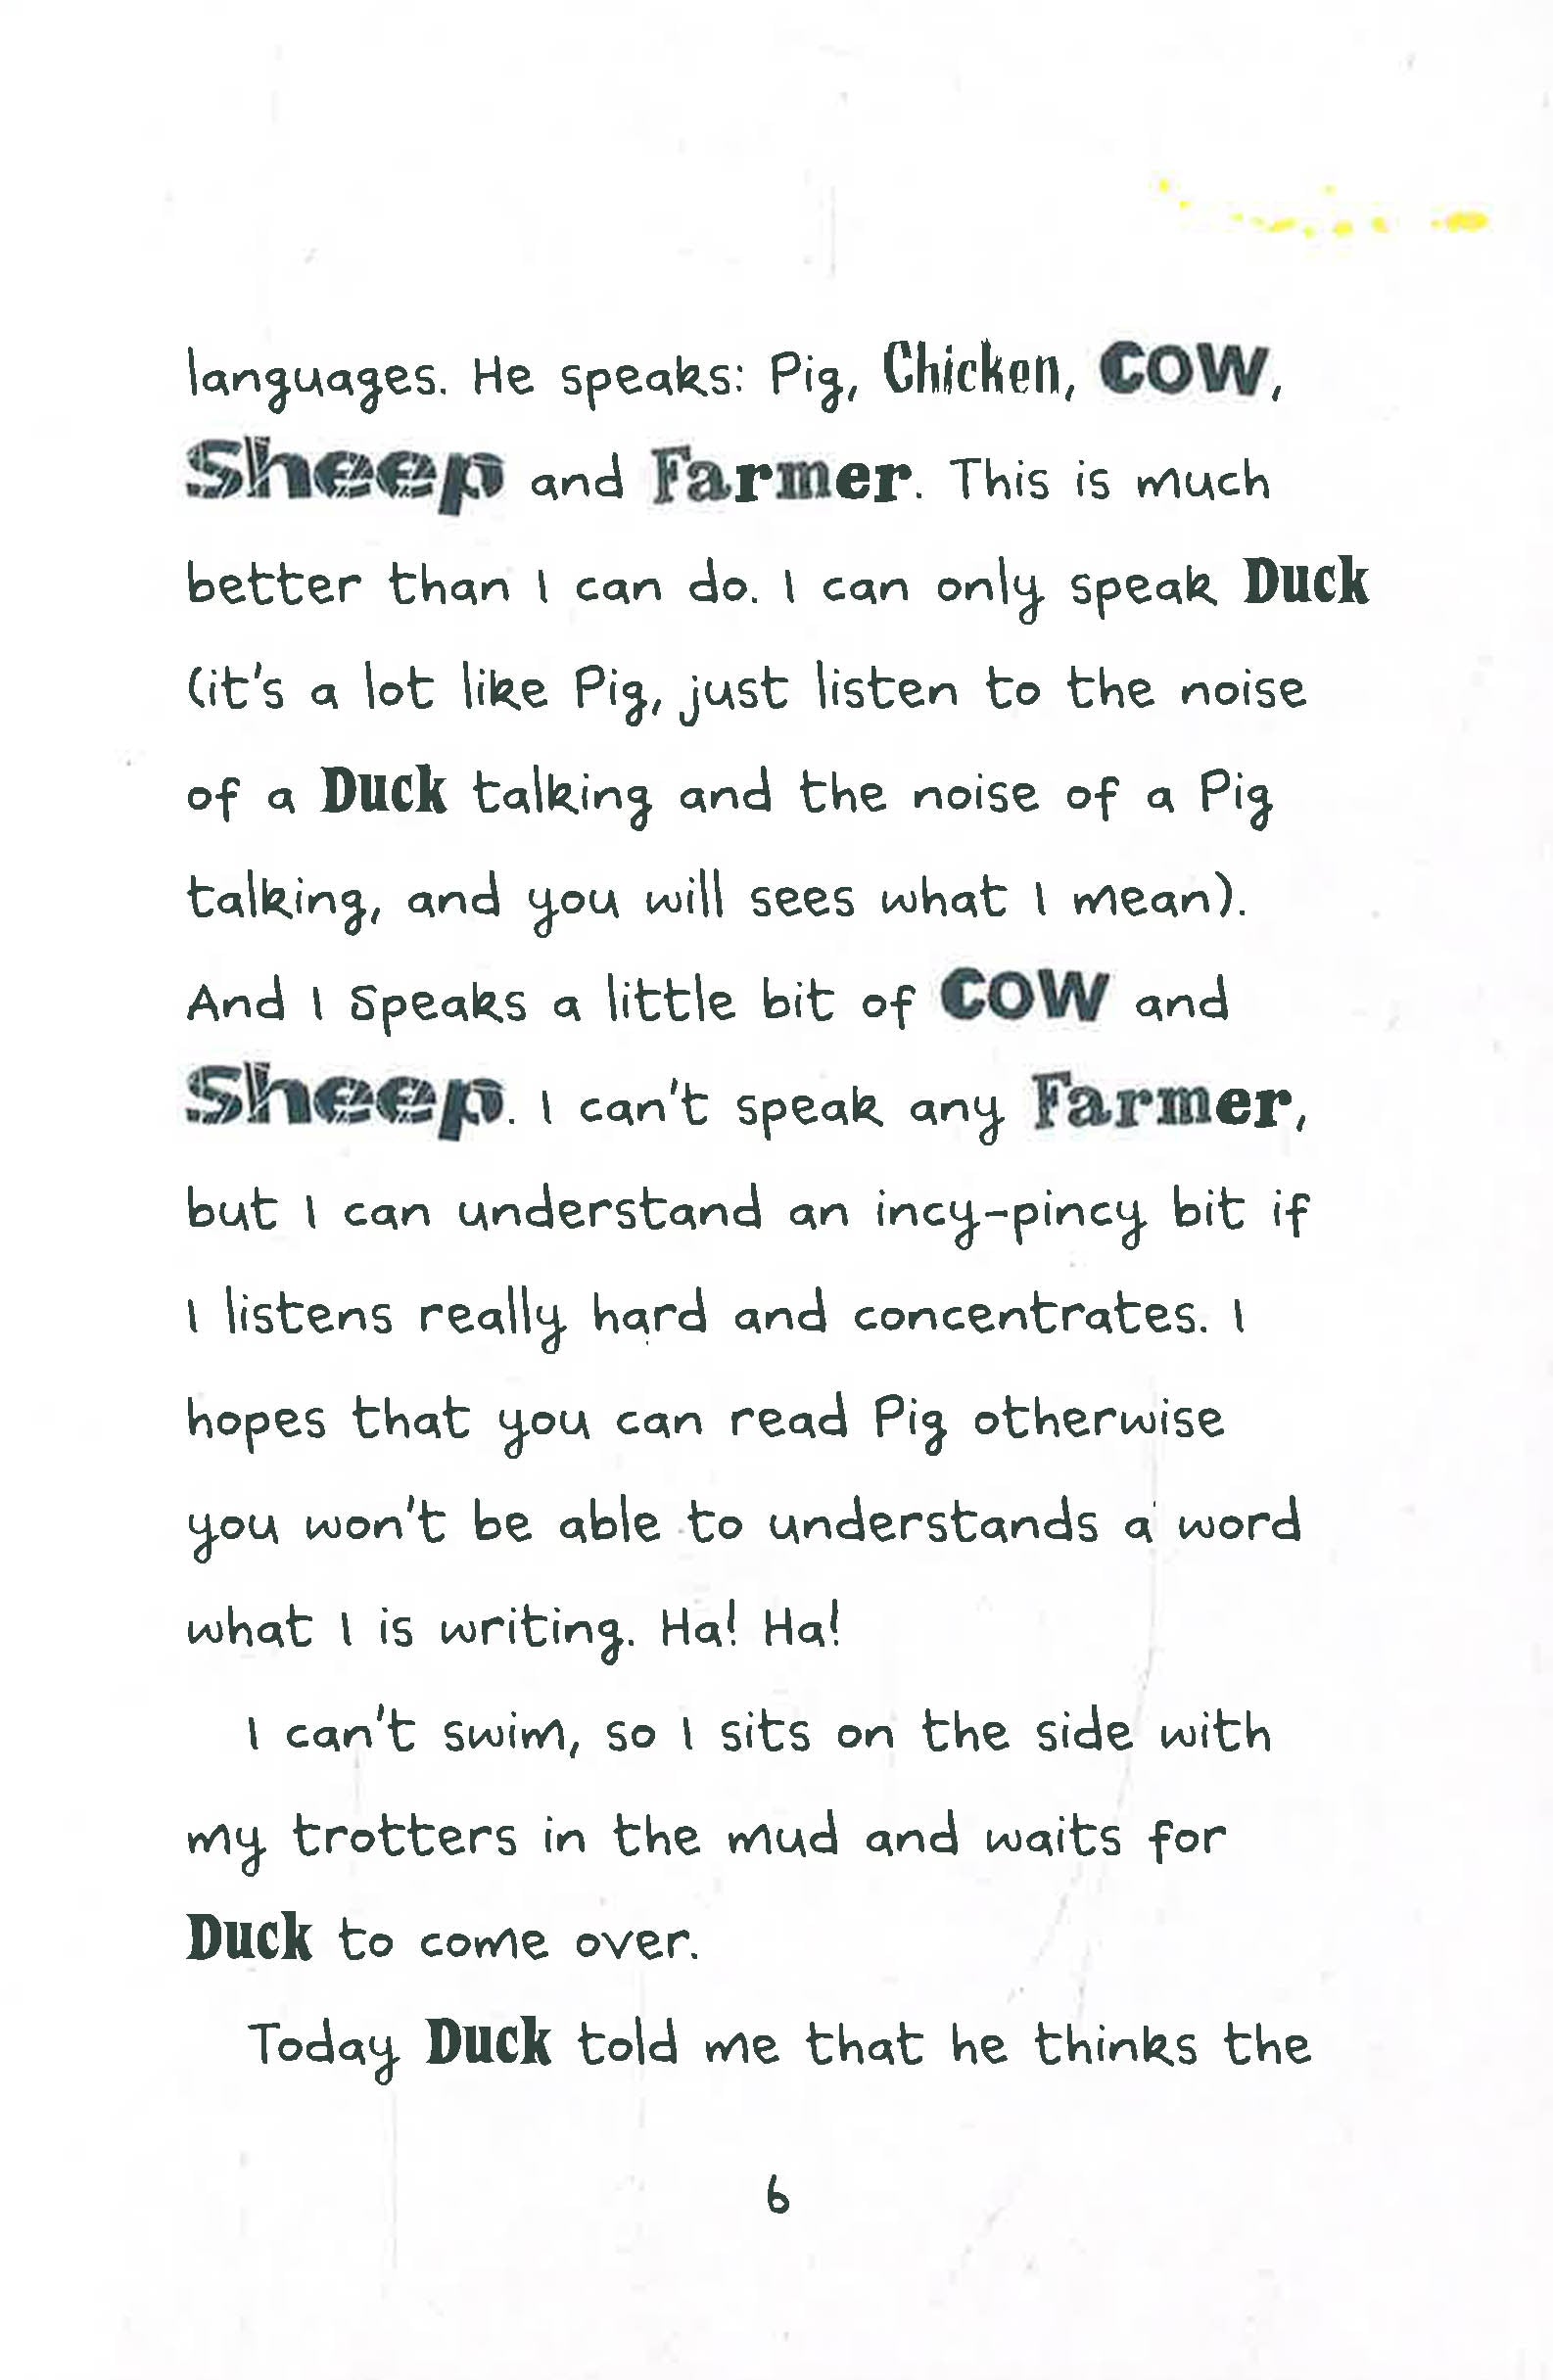 languages. He speaks: Pig, Chicken, COW,
Sheep and Farmer. This is much
better than I can do. I can only speak Duck
(it's a lot like Pig, just listen to the noise
of a Duck talking and the noise of a Pig
talking, and you will sees what I mean).
And I Speaks a little bit of COW and
Sheep. I can't speak any Farmer,
but I can understand an incy-pincy bit if
I listens really hard and concentrates. I
hopes that you can read Pig otherwise
you won't be able to understands a word
what I is writing. Ha! Ha!
I can't swim, so I sits on the side with
my trotters in the mud and waits for
Duck to come over.
Today Duck told me that he thinks the
6